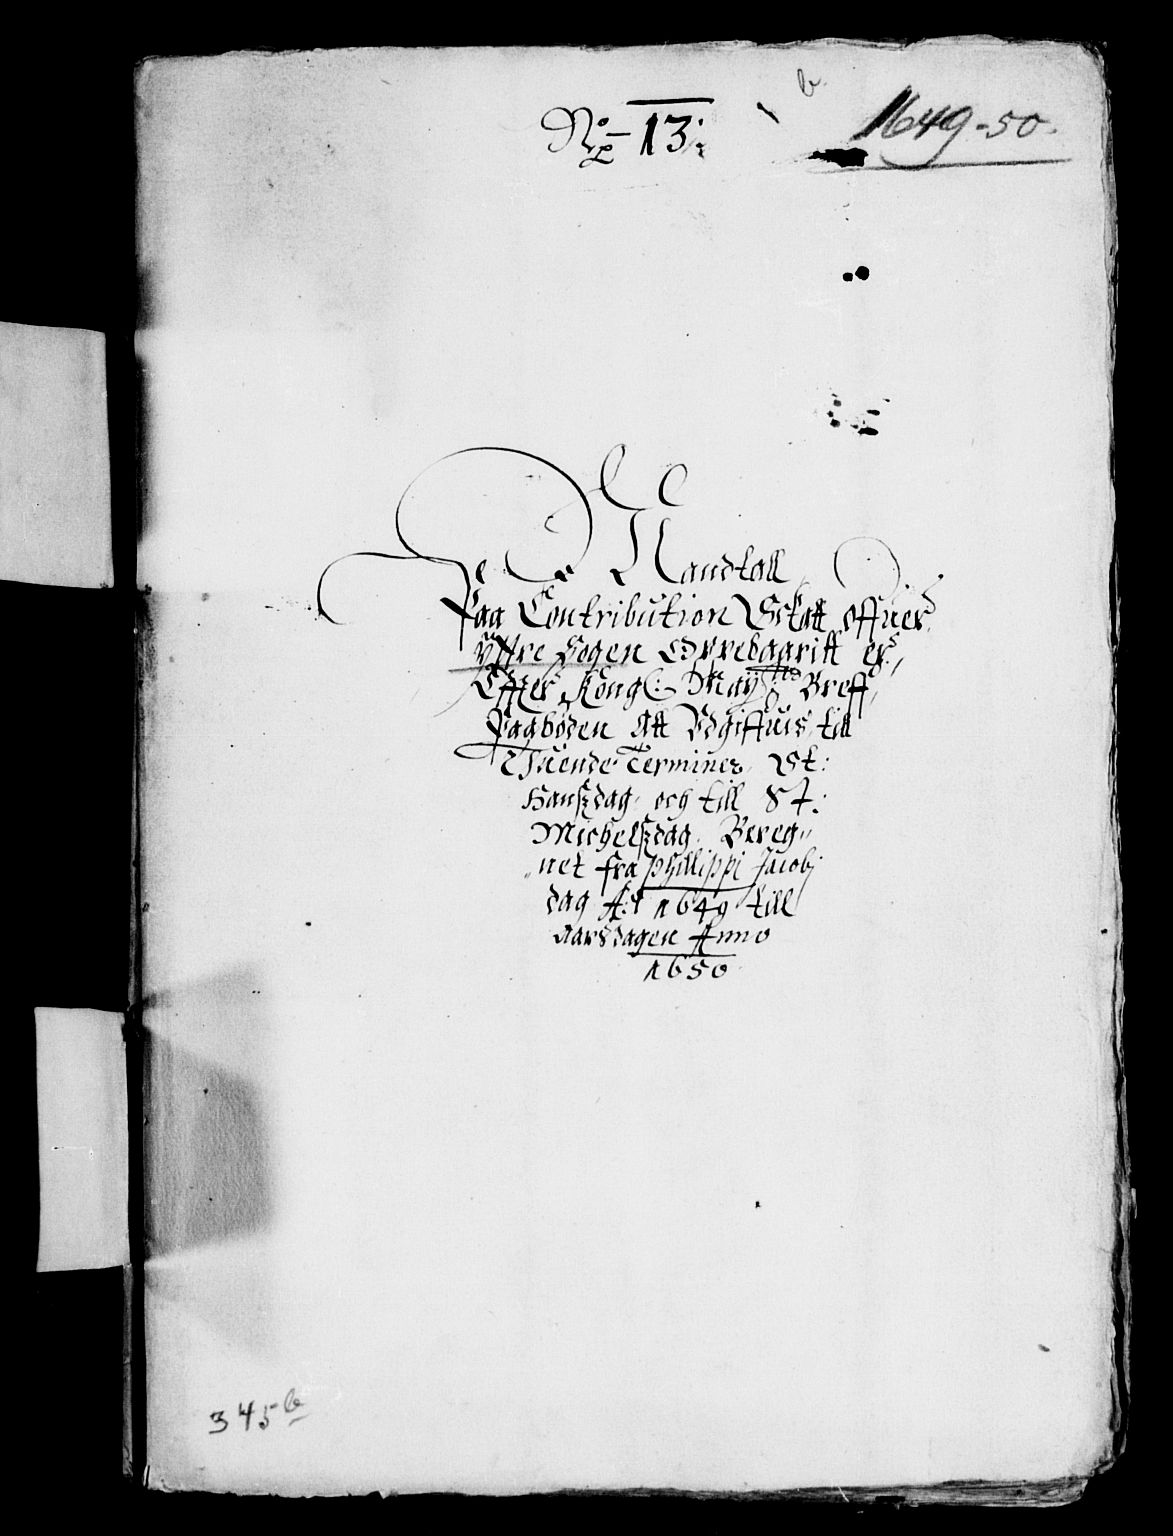 b
No 13:
1649-50.
Mandtall
Paa Contribution Schatt offuer
Yttre Sogen
Effter Kongl: Maytz Breff
Paabøden Att Vdgiffuis till
Tuende Terminer, St:
Hanszdag och till St:
Michelszdag. Bereg„
„net fra Phillippi Jacobj
dag Ao 1649 till
Aarsdagen Anno
1650
345 b